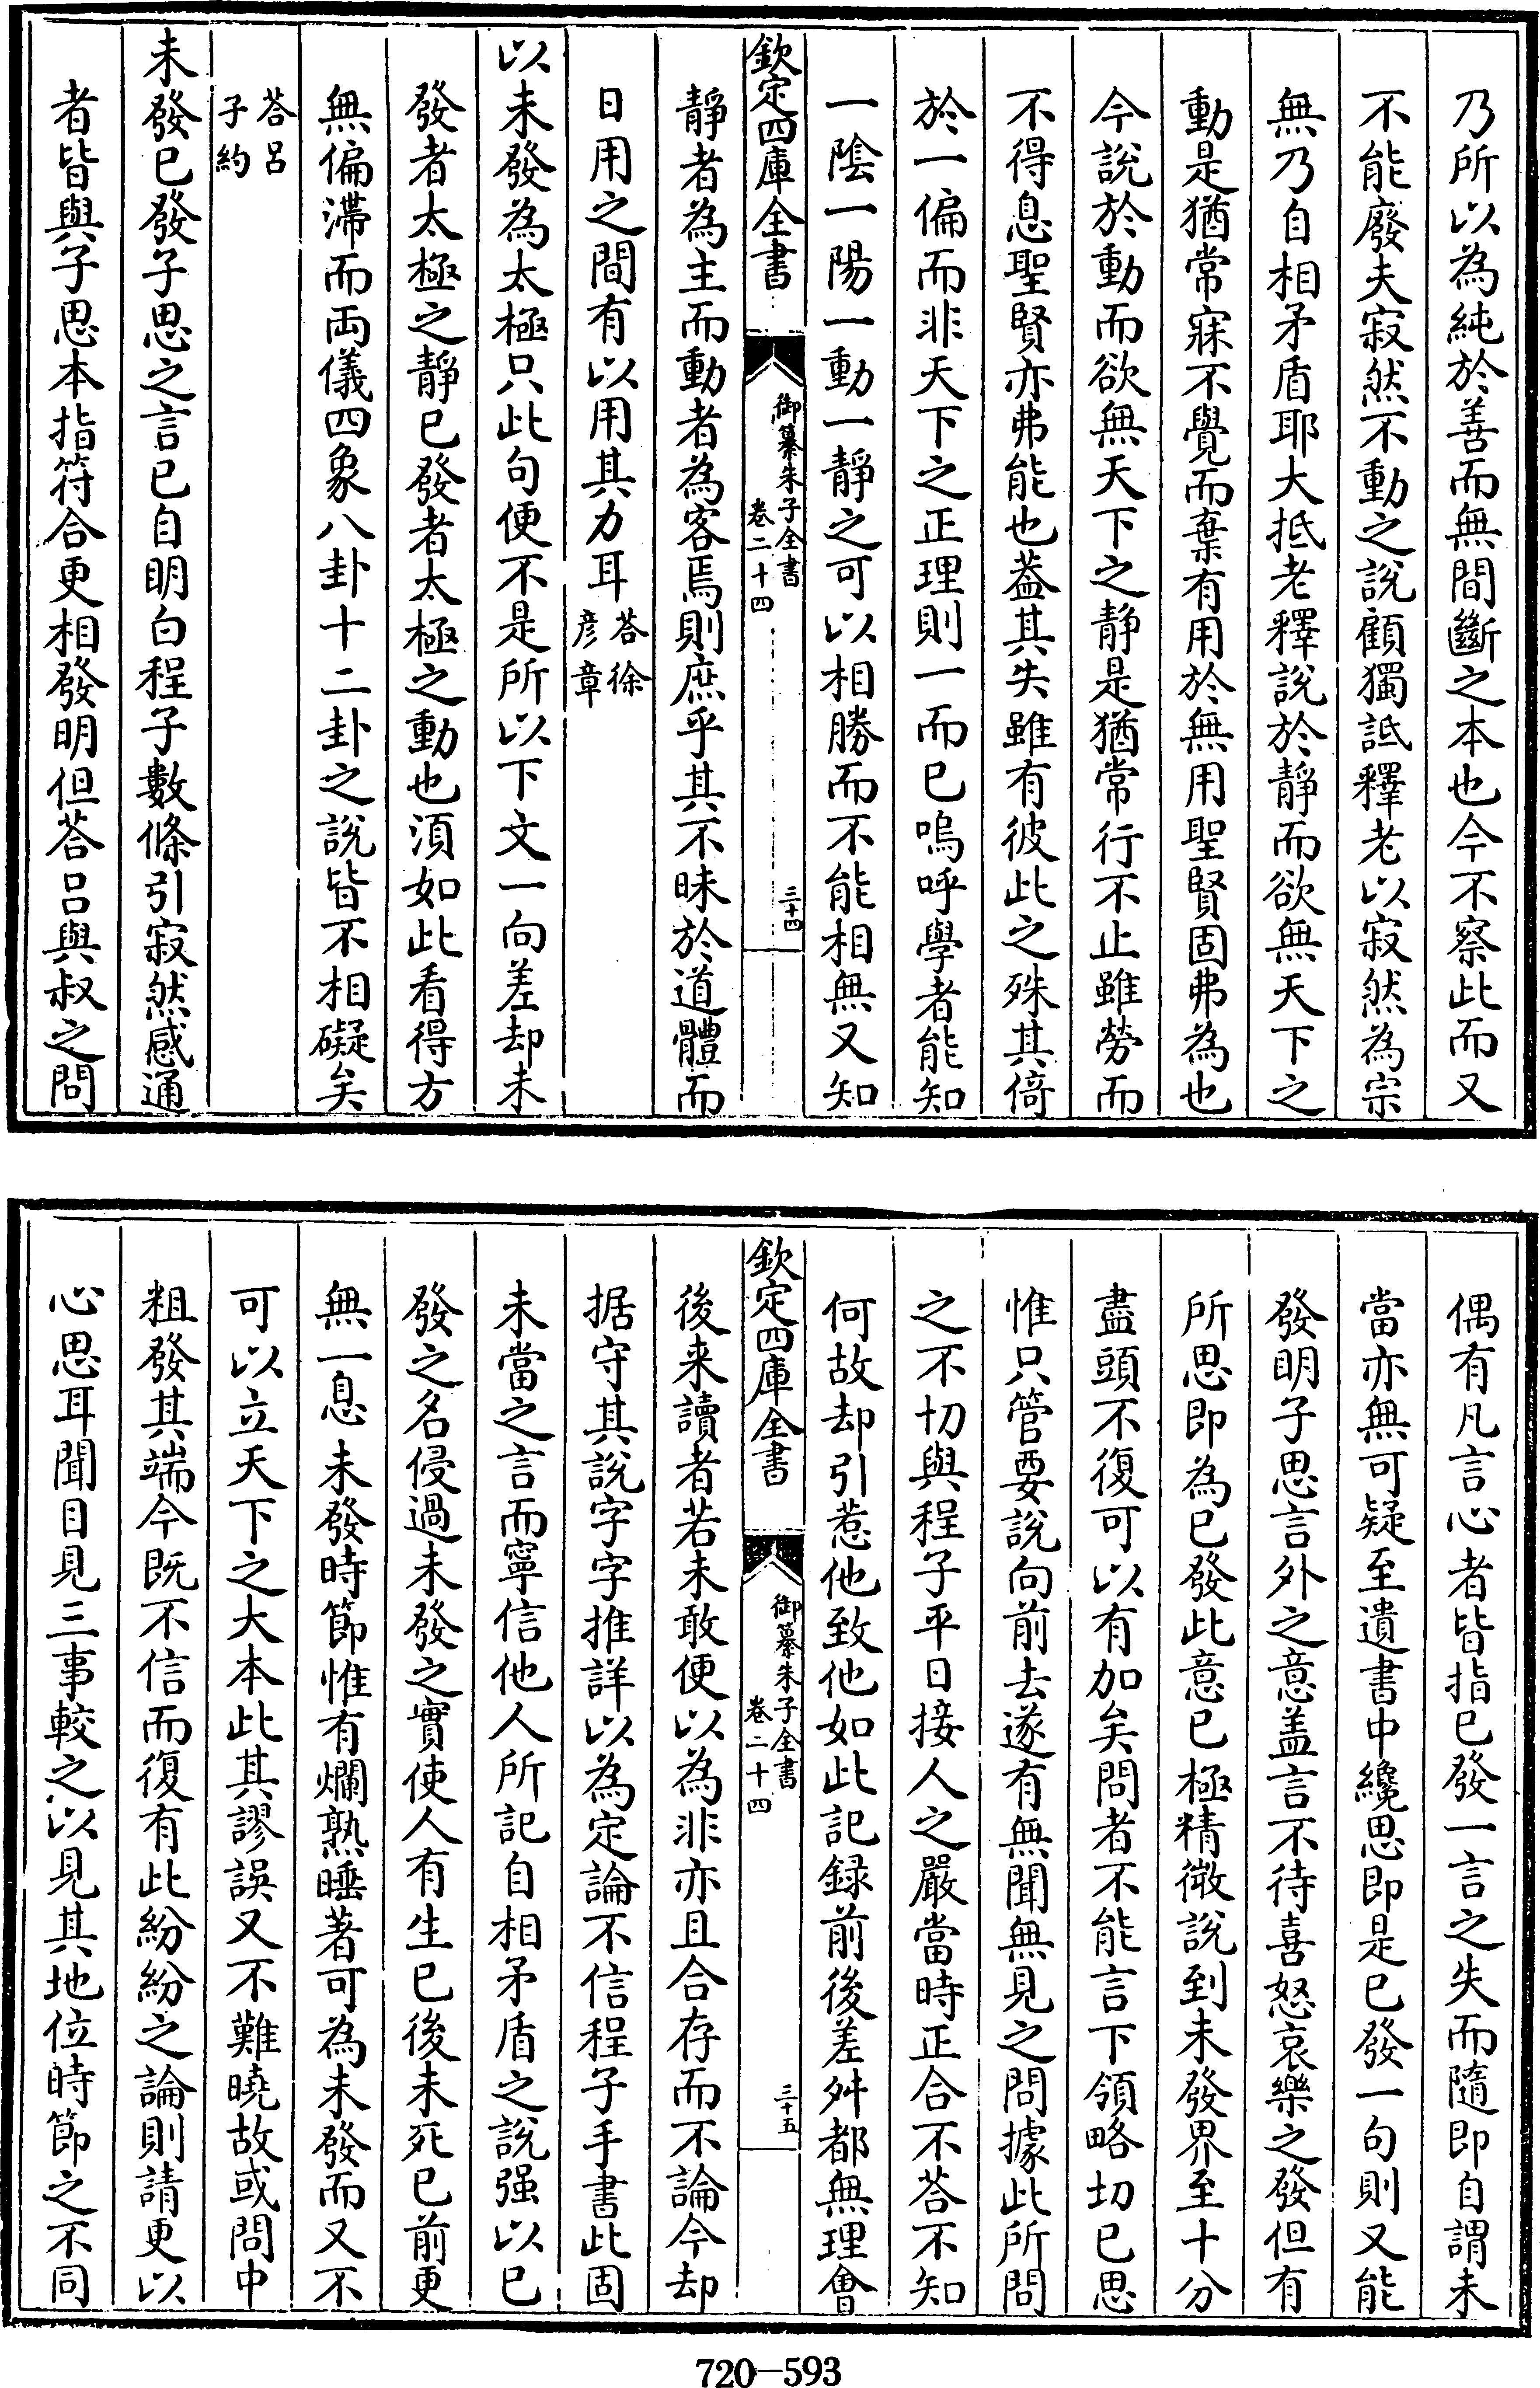 乃所以為純於善而無間斷之本也今不察此而又
不能廢夫寂然不動之說顧獨詆釋老以寂然為宗
無乃自相矛盾耶大抵老釋說於靜而欲無天下之
動是猶常寐不覺而棄有用於無用聖賢固弗為也
今說於動而欲無天下之靜是猶常行不止雖勞而
不得息聖賢亦弗能也葢其失雖有彼此之殊其倚
於一偏而非天下之正理則一而已嗚呼學者能知
一陰一陽一動一靜之可以相勝而不能相無又知
欽定四庫全書
御纂朱子全書
卷二十四
三十四
靜者為主而動者為客焉則庶乎其不昧於道體而
日用之間有以用其力耳答徐彦章
以未發為太極只此句便不是所以下文一向差却未
發者太極之靜已發者太極之動也須如此看得方
無偏滯而兩儀四象八卦十二卦之說皆不相礙矣
答呂子約
未發已發子思之言已自明白程子數條引寂然感通
者皆與子思本指符合更相發明但答呂與叔之問
偶有凡言心者皆指已發一言之失而隨即自謂未
當亦無可疑至遺書中纔思即是已發一句則又能
發明子思言外之意盖言不待喜怒哀樂之發但有
所思即為已發此意已極精微說到未發界至十分
盡頭不復可以有加矣問者不能言下領略切已思
惟只管要說向前去遂有無聞無見之問據此所問
之不切與程子平日接人之嚴當時正合不答不知
何故却引惹他致他如此記録前後差舛都無理會
欽定四庫全書
御纂朱子全書
卷二十四
三十五
後来讀者若未敢便以為非亦且合存而不論今却
据守其說字字推詳以為定論不信程子手書此固
未當之言而寧信他人所記自相矛盾之說强以已
發之名侵過未發之實使人有生已後未死已前更
無一息未發時節惟有爛熟睡著可為未發而又不
可以立天下之大本此其謬誤又不難曉故或問中
粗發其端今既不信而復有此紛紛之論則請更以
心思耳聞目見三事較之以見其地位時節之不同
720-593